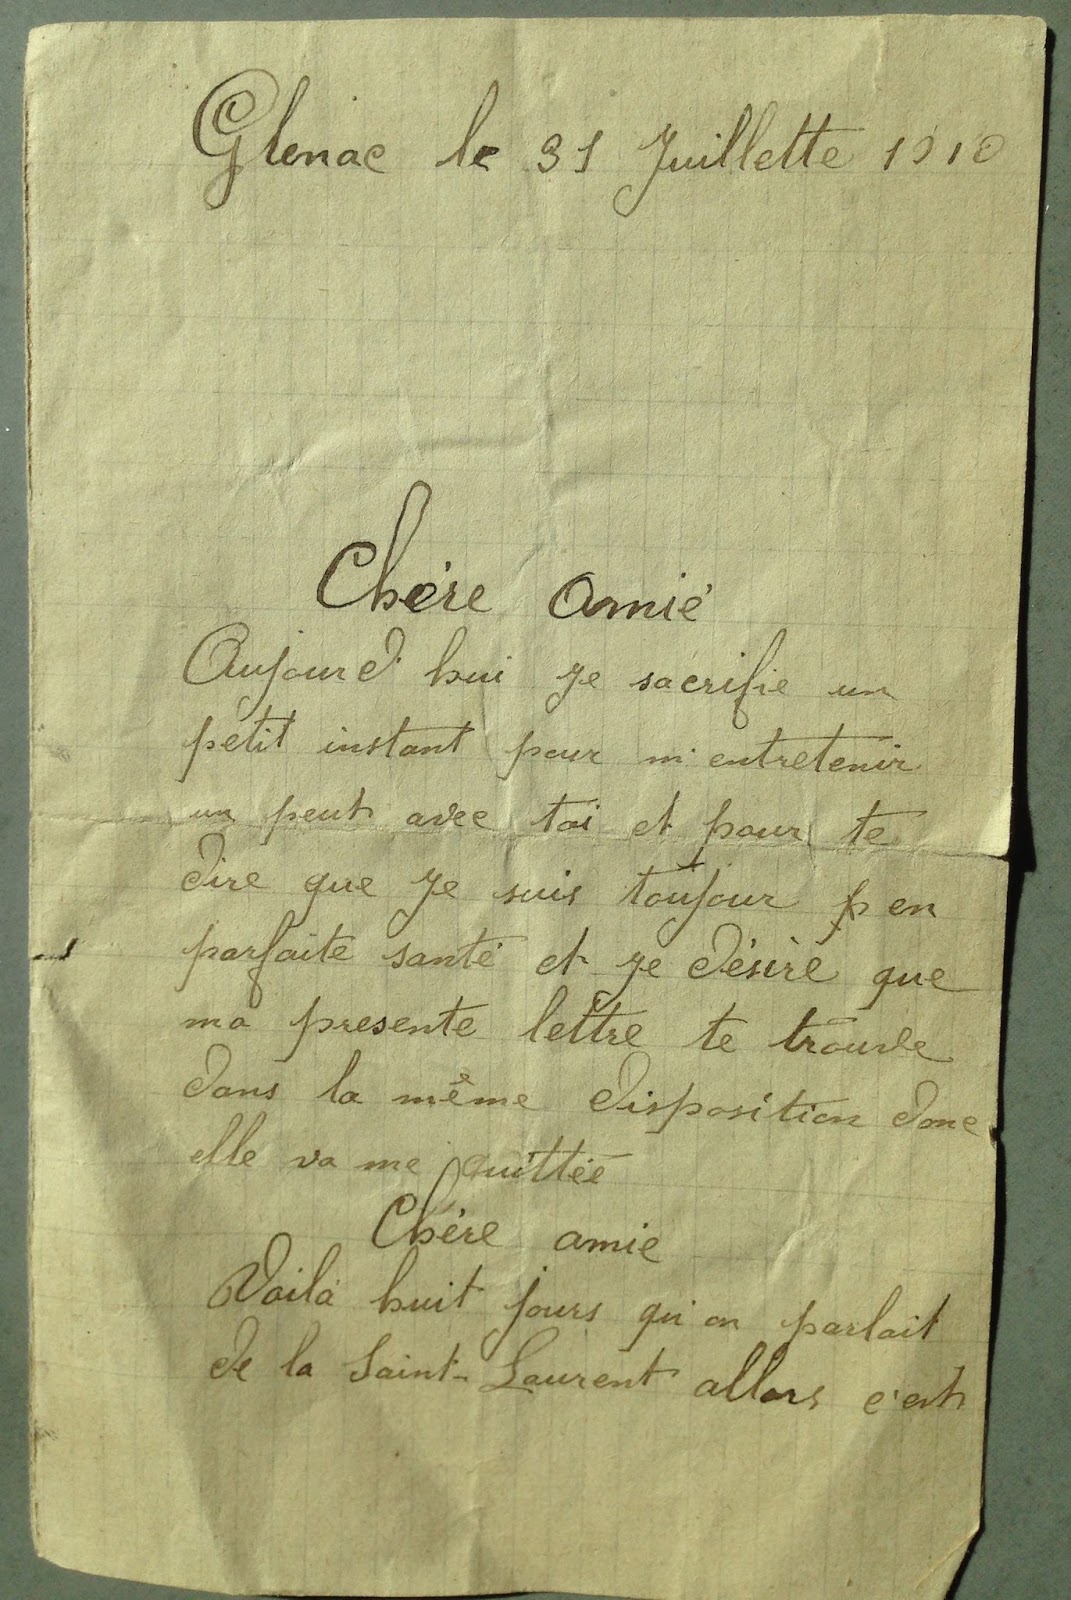 Glenac le 31 Juillette 1910
Chère amié
Aujourd'hui je sacrifie un
petit instant pour m'entretenir
un peut avec toi et pour te
dire que je suis toujour en
parfaite santé et je désiré que
ma presente lettre te trouve
dans la même disposition donc
elle va me quittée
Chère amie
Voilà huit jours qu'on parlait
de la Saint-Laurent allors c'est